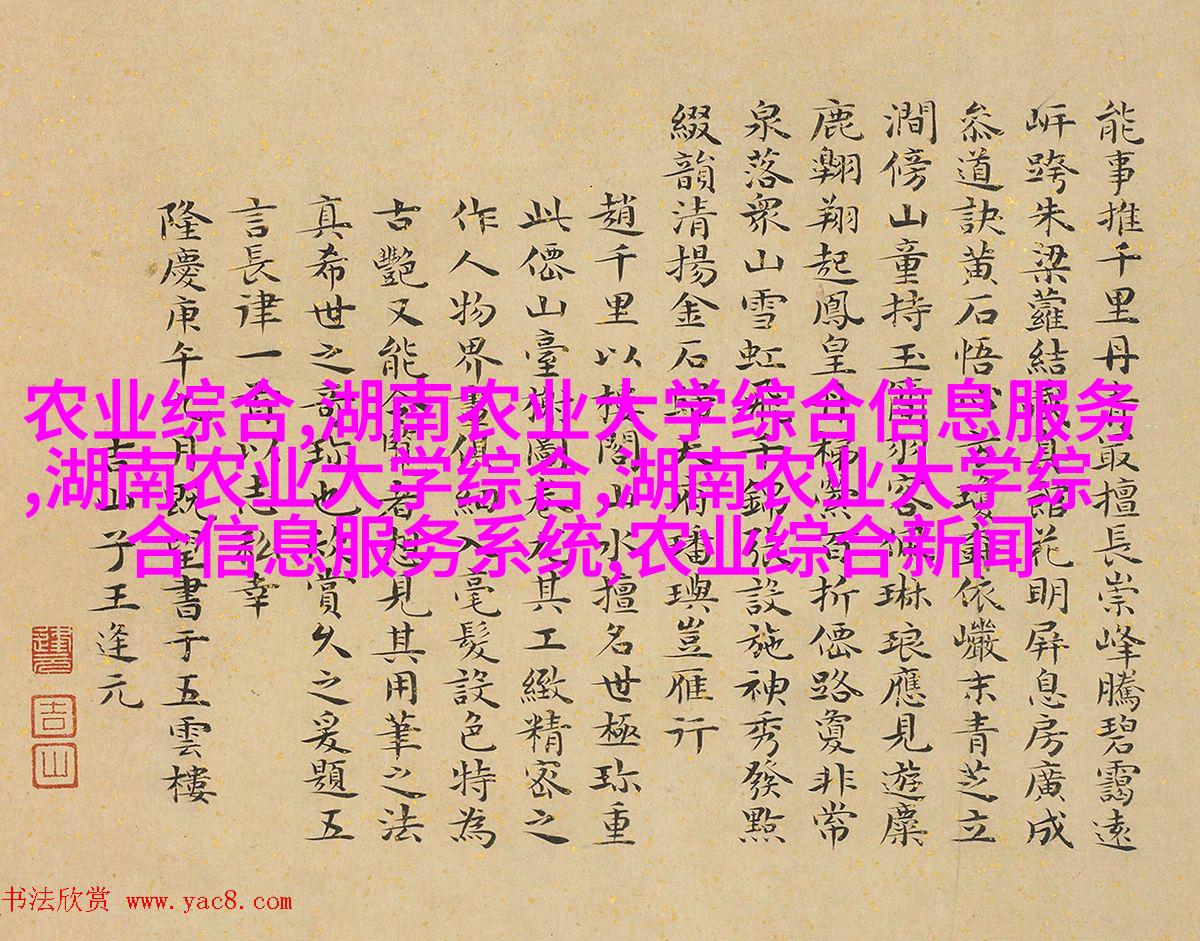 能事推千里丹青最擅長崇峰騰碧靄遠
岍跨朱梁蘿結花明屏息房廣成
叅道訣黃石悟依巘末青芝立
澗傍山童持玉琳琅應見遊麋
鹿翱翔起鳳皇折僊路敻非常
泉落衆山雪虹飛千錦張設施神秀發點
綴韻清揚金石璠璵豈雁行
趙千里以山水擅名世極珍重
此僊山臺其工緻精密之
作人物界畫俱細入毫髮設色特為
古艷又能者想見其用筆之法
真希世之奇珍也賞久之爰題五
言長律一首以志私幸
隆慶庚午九月既望書于五雲樓
吉山子王逢元
吉山
农业综合,湖南农业大学综合信息服务
,湖南农业大学综合,湖南农业大学综
合信息服务系统,农业综合新闻
书法欣赏 www.yac8.com